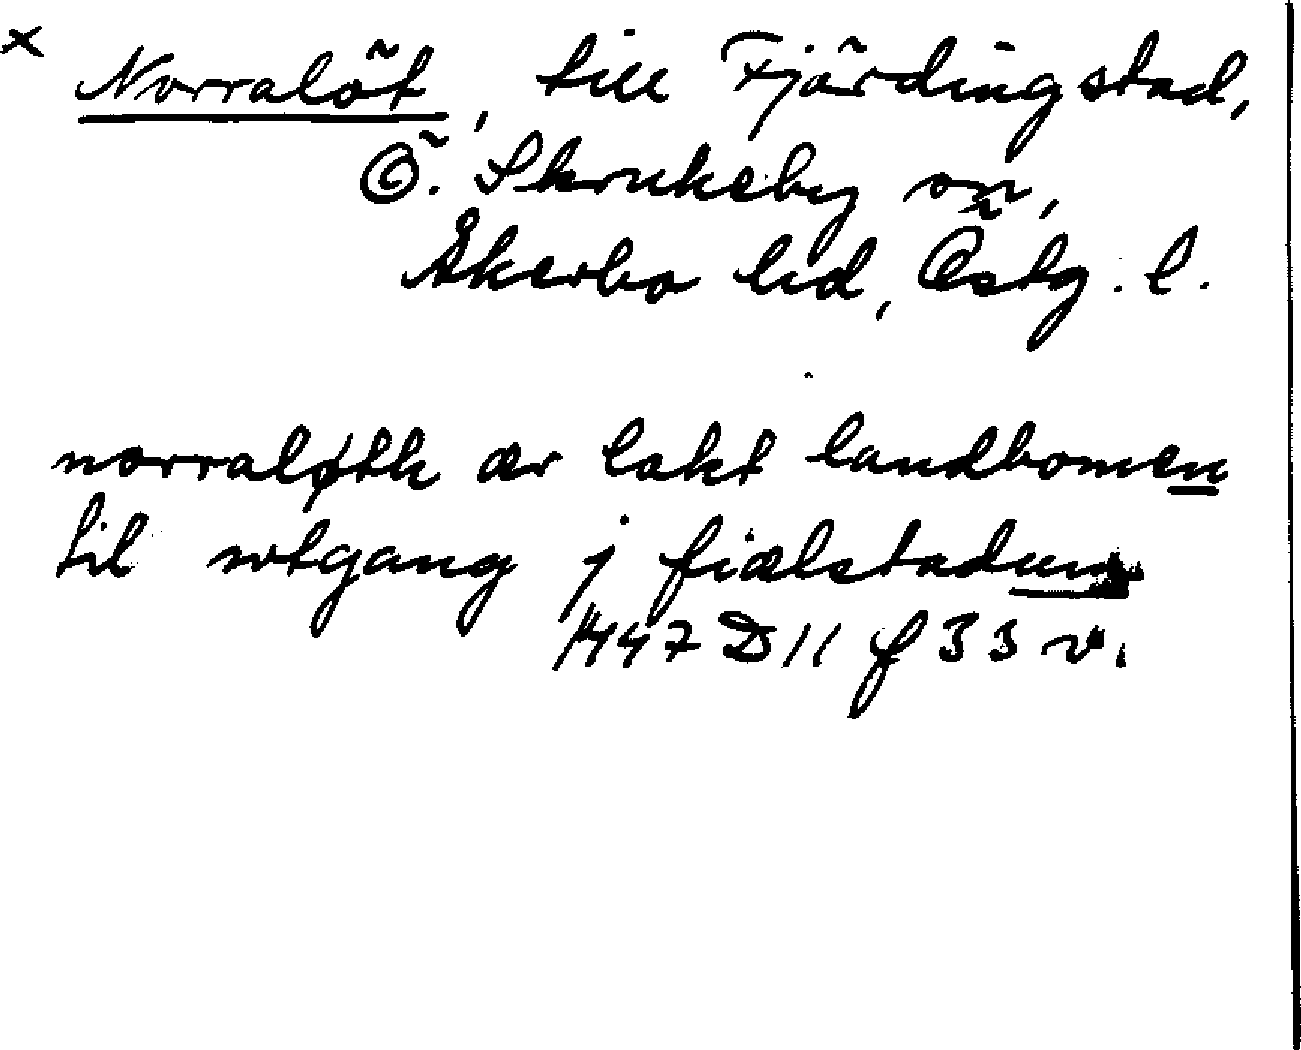 × Norralöt, till Fjärdingstad,
Ö. Skrukeby sn,
Åkerbo hd, Östg. l.
norraløth ær lakt landbomen
til wtgang j fiælstadum
1447 D 11 f 33 v.